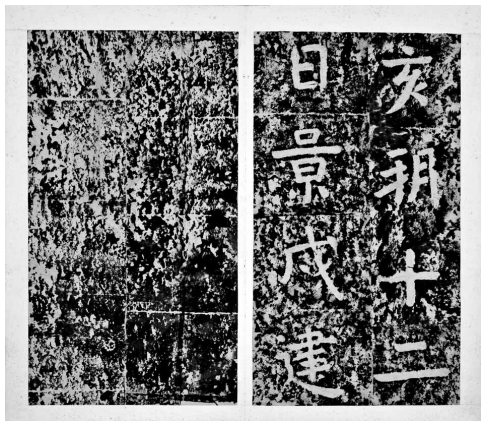 亥朔十二
日景戌建